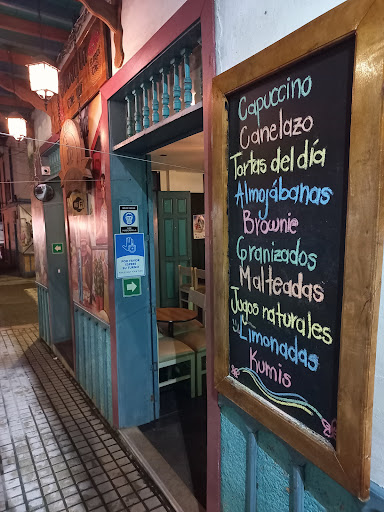 Capuccino
Canelazo
Tortas del día
Almojábanas
Brownie
Granizados
Malteadas
Jugos naturales
Limonadas
Kumis